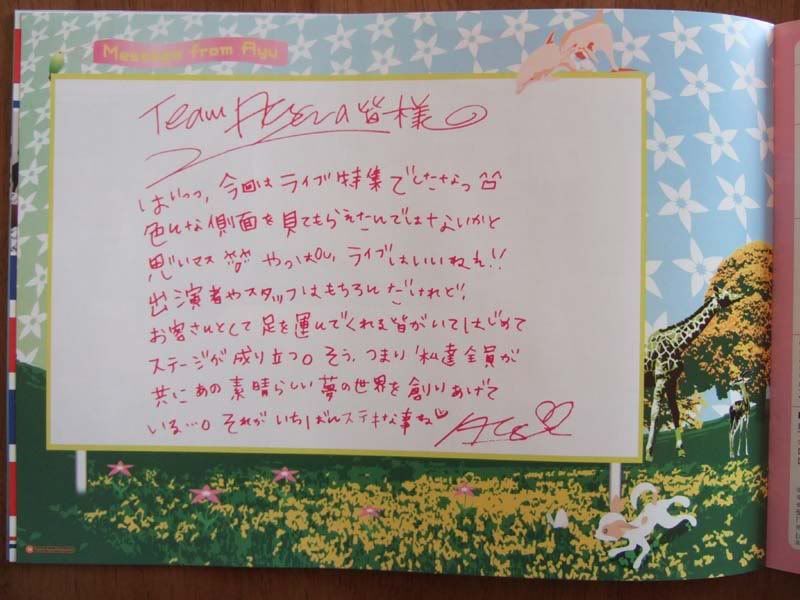 Message from Ayu
Team Ayu の皆様
はいっっ, 今回は ライブ特集でしたなっ
色んな側面を見てもらえたんではないかと
思いマス やっぱ, ライブはいいねぇ!!
出演者やスタッフはもちろんだけれど,
お客さんとして足を運んでくれる皆がいてはじめて
ステージが成り立つ。そう, つまり「私達全員が
共にあの素晴らしい夢の世界を創りあげて
いる…。それがいちばんステキな事ね